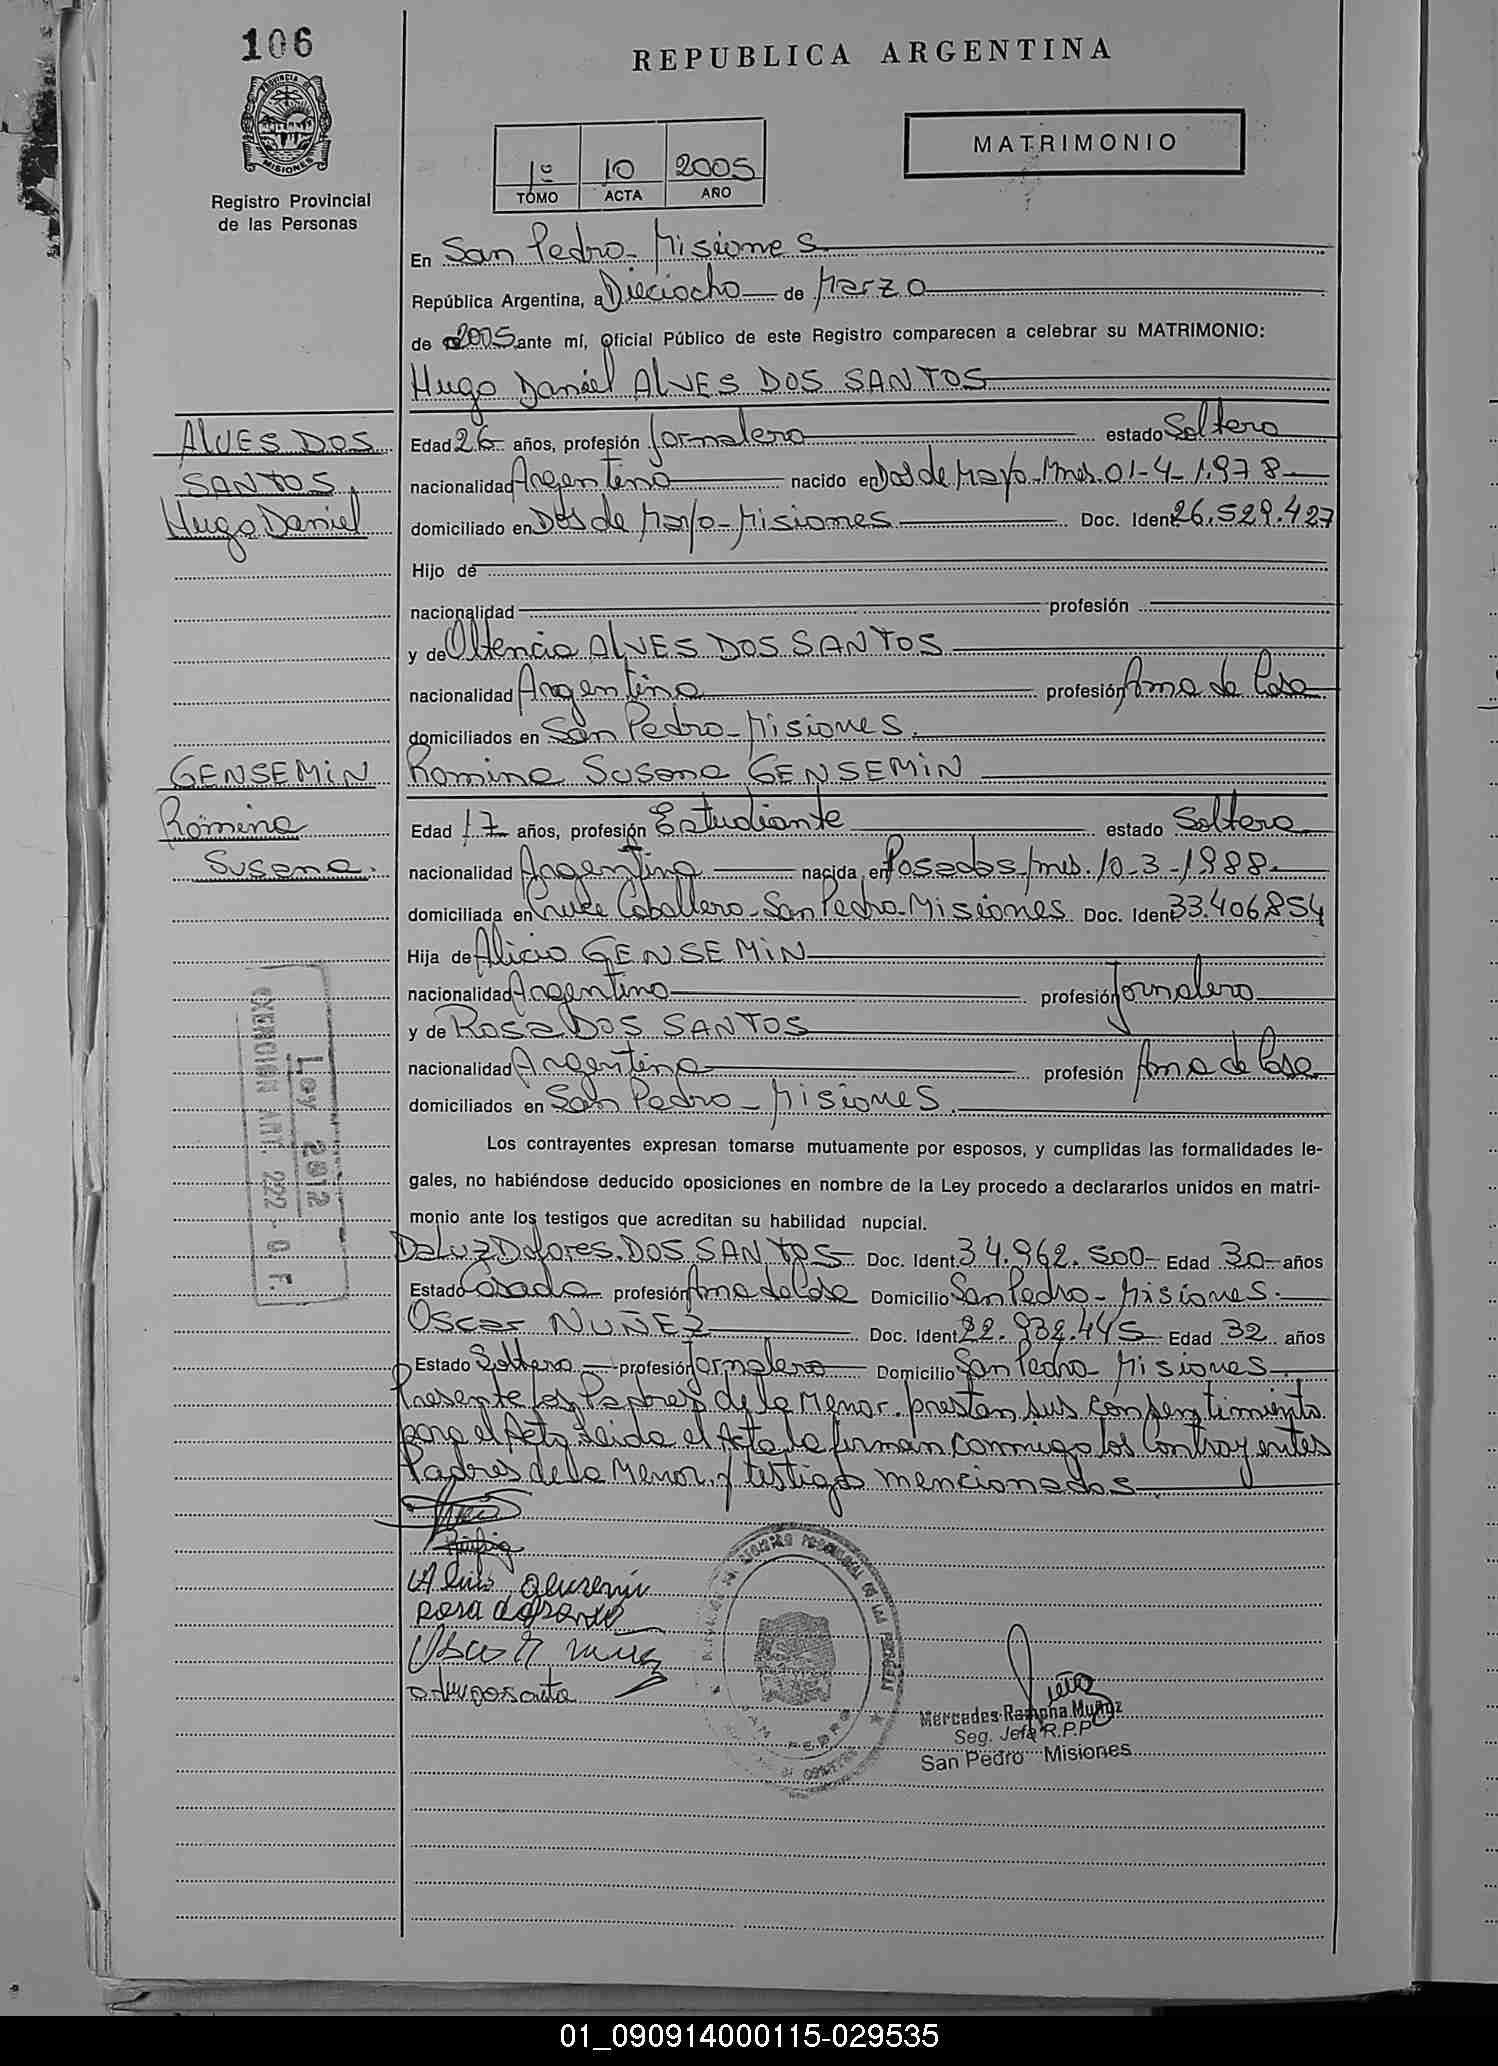 106
REPUBLICA ARGENTINA
PROVINCIA DE MISIONES
MATRIMONIO
1º 10 2005
TOMO ACTA AÑO
Registro Provincial
de las Personas
En San Pedro - Misiones
República Argentina, a Dieciocho de Marzo
de 2005 ante mí, Oficial Público de este Registro comparecen a celebrar su MATRIMONIO:
Hugo Daniel ALVES DOS SANTOS
ALVES DOS
SANTOS,
Hugo Daniel
Edad 26 años, profesión Jornalero estado Soltero
nacionalidad Argentino nacido en Dos de Mayo - Mnes. 01-4-1.978
domiciliado en Dos de Mayo - Misiones Doc. Ident. 26.529.427
Hijo de
nacionalidad profesión
y de ALVES DOS SANTOS
nacionalidad Argentina profesión Ama de Casa
domiciliados en San Pedro - Misiones.
GENSEMIN
Romina
Susana.
Romina Susana GENSEMIN
Edad 17 años, profesión Estudiante estado Soltera
nacionalidad Argentina nacida en Posadas Mnes. 10-3-1988
domiciliada en Cruce Caballero - San Pedro - Misiones Doc. Ident. 33.406.854
Hija de Alicio GENSEMIN
nacionalidad Argentino profesión Jornalero
y de Rosa DOS SANTOS
nacionalidad Argentina profesión Ama de Casa
domiciliados en San Pedro - Misiones.
Ley 2812
EXENCION ART. 222 - C. F.
Los contrayentes expresan tomarse mutuamente por esposos, y cumplidas las formalidades le-
gales, no habiéndose deducido oposiciones en nombre de la Ley procedo a declararlos unidos en matri-
monio ante los testigos que acreditan su habilidad nupcial.
Daluz Dolores DOS SANTOS Doc. Ident. 34.962.500 Edad 30 años
Estado Casada profesión Ama de Casa Domicilio San Pedro - Misiones.
Oscar NUÑEZ Doc. Ident. 22.932.445 Edad 32 años
Estado Soltero profesión Jornalero Domicilio San Pedro - Misiones
Presente los Padres de la Menor, prestan sus consentimiento
para el Acto Leida el Acta la firman conmigo los Contrayentes
Padres de la Menor y testigo mencionados
SAN PEDRO
Mercedes Ramona Muñoz
Seg. Jefa R.P.P
San Pedro Misiones
01_090914000115-029535